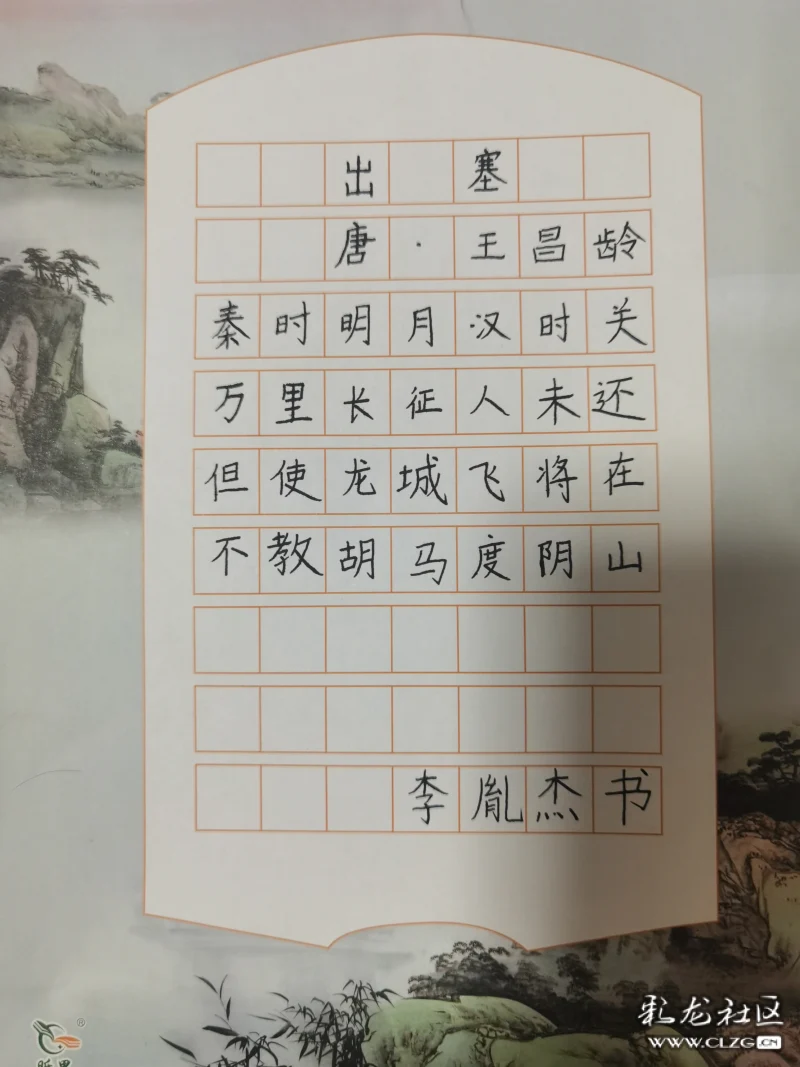 出塞
唐·王昌龄
秦时明月汉时关
万里长征人未还
但使龙城飞将在
不教胡马度阴山
李胤杰书
彩龙社区
WWW.CLZG.CN